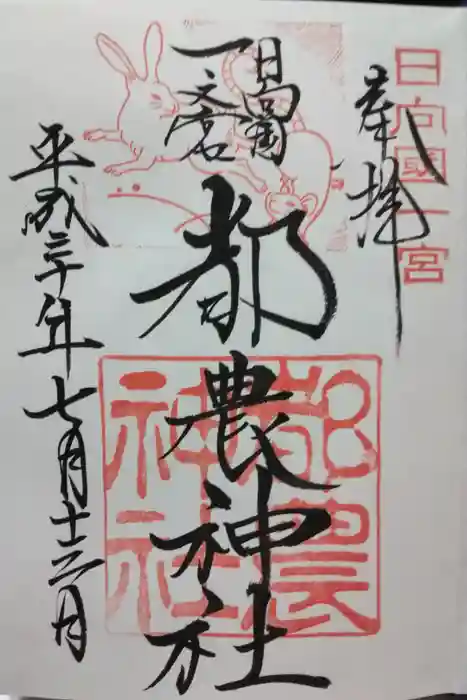 日向國一宮
奉拝
日向國
一之宮
都農神社
都農
神社
平成三十年七月十二日